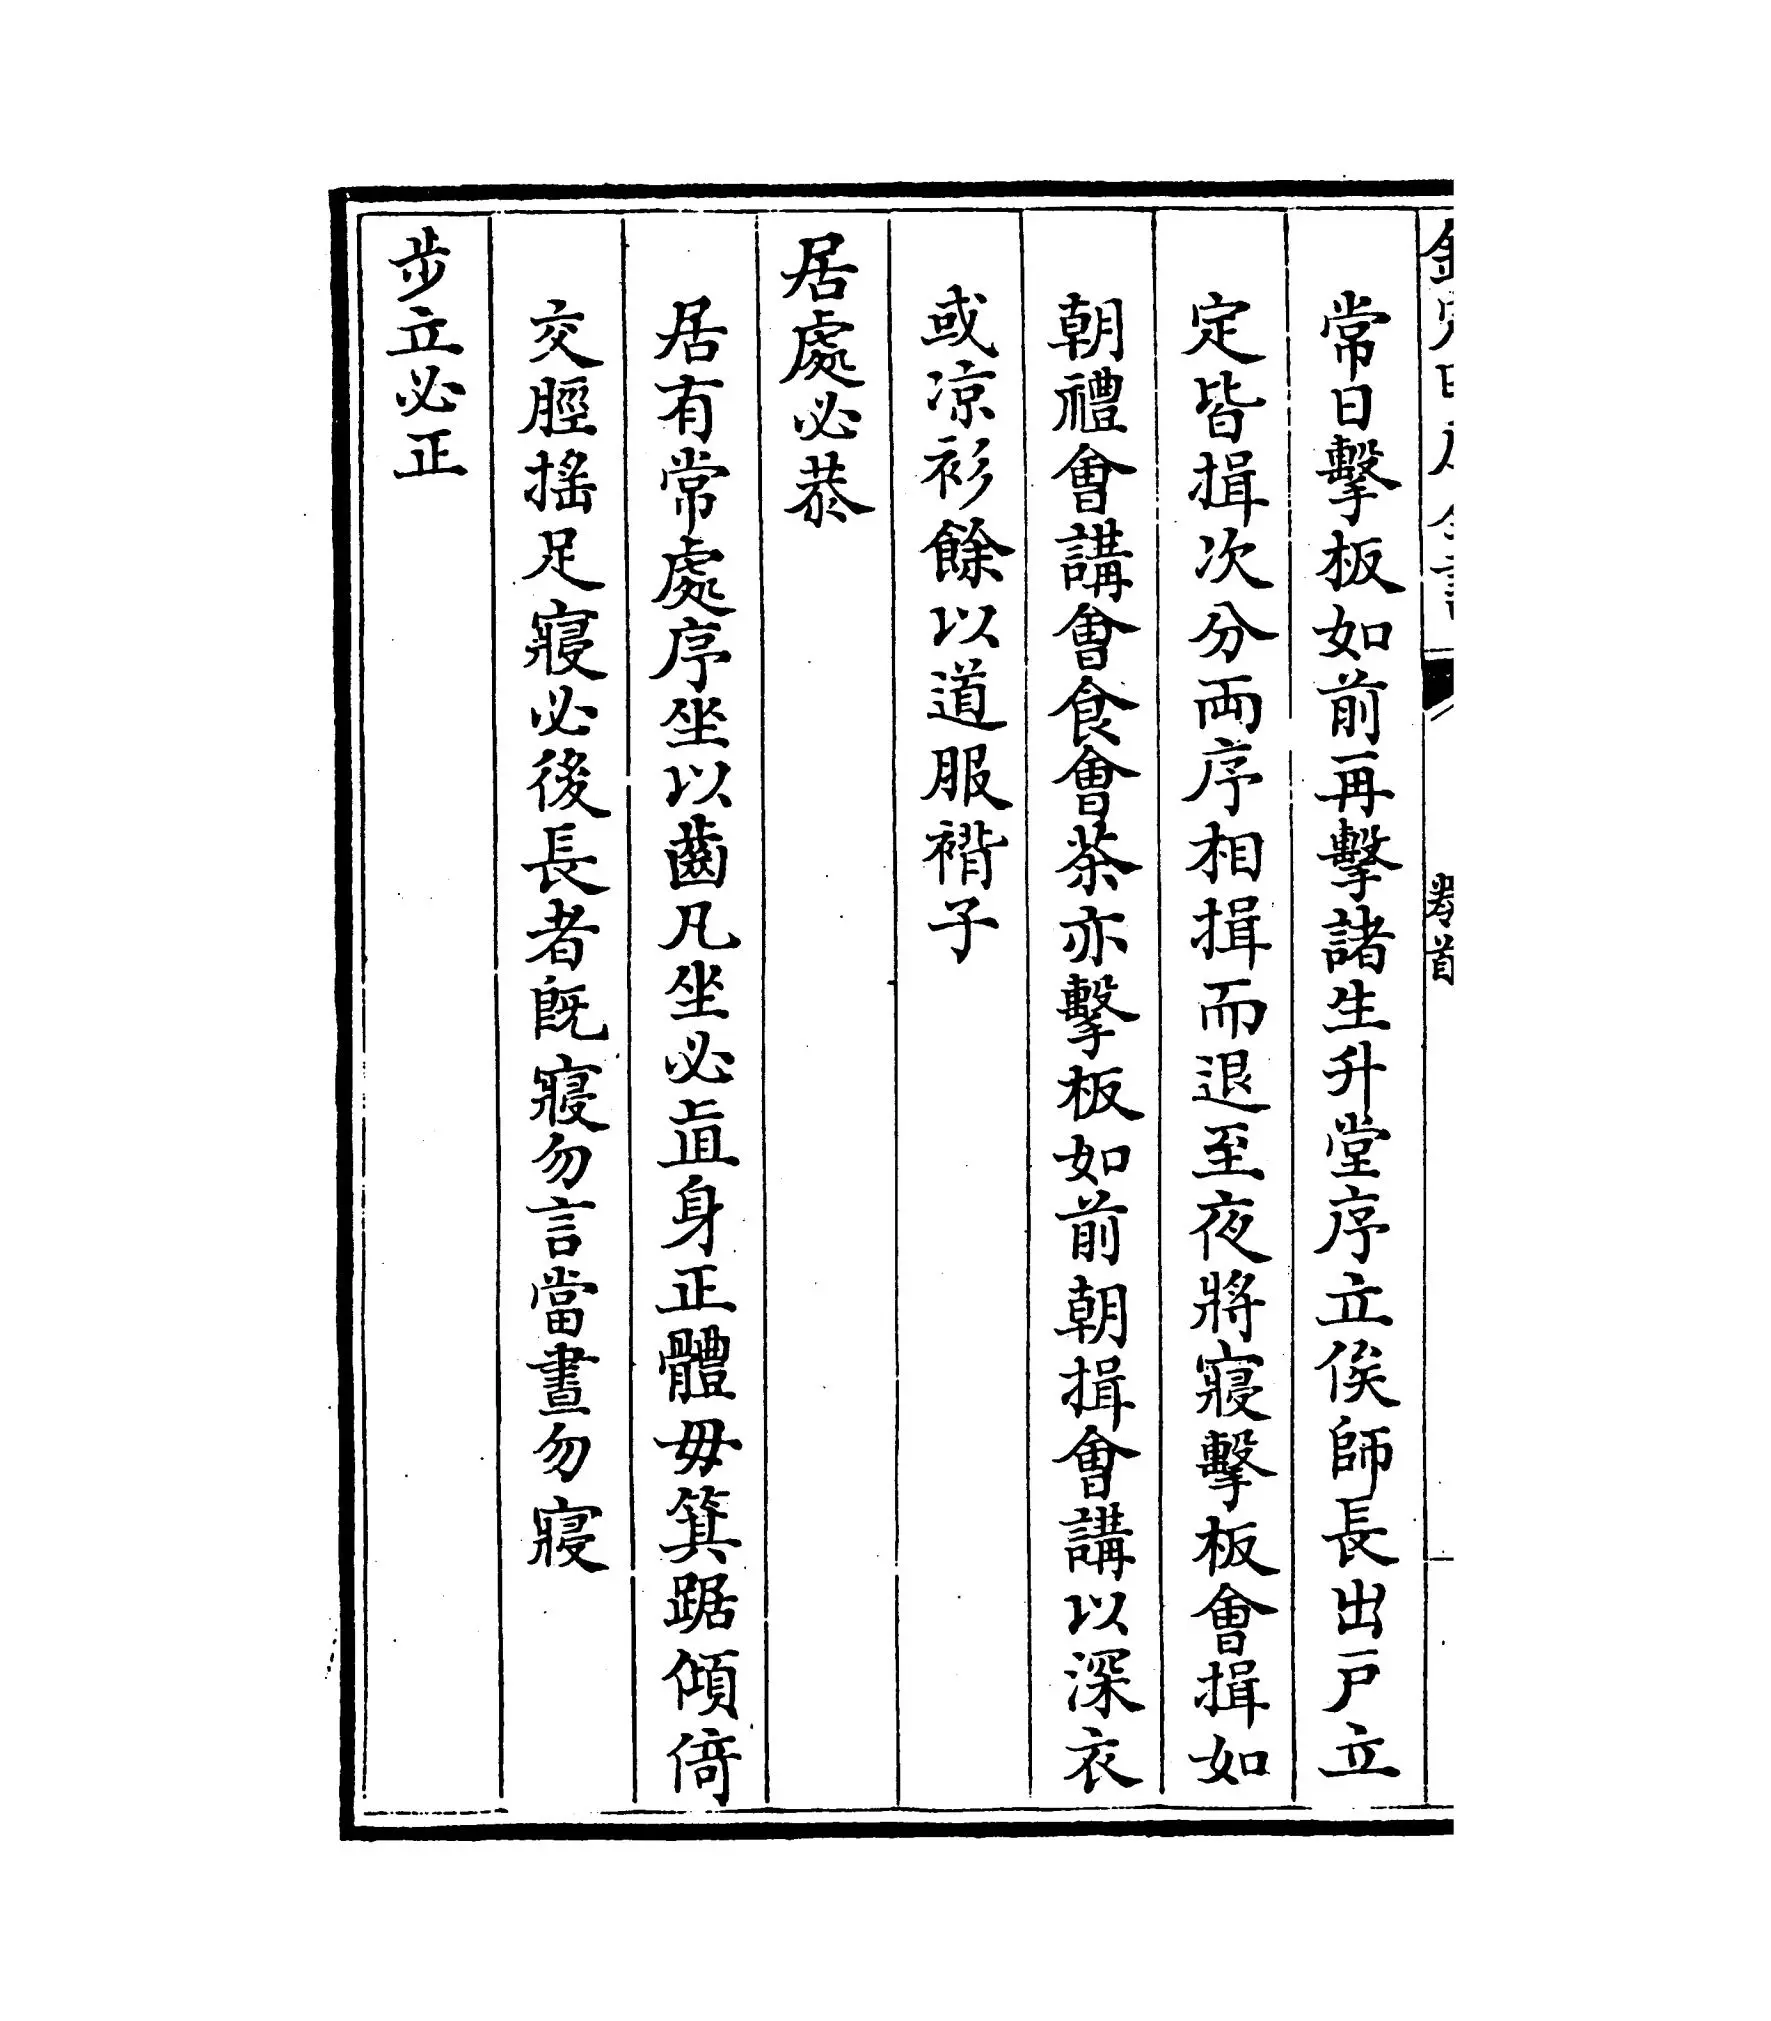 欽定四庫全書
卷首
常日擊板如前再擊諸生升堂序立俟師長出戸立
定皆揖次分兩序相揖而退至夜將寢擊板會揖如
朝禮會講會食會茶亦擊板如前朝揖會講以深衣
或凉衫餘以道服褙子
居處必恭
居有常處序坐以齒凡坐必直身正體毋箕踞傾倚
交脛搖足寢必後長者旣寢勿言當晝勿寢
步立必正